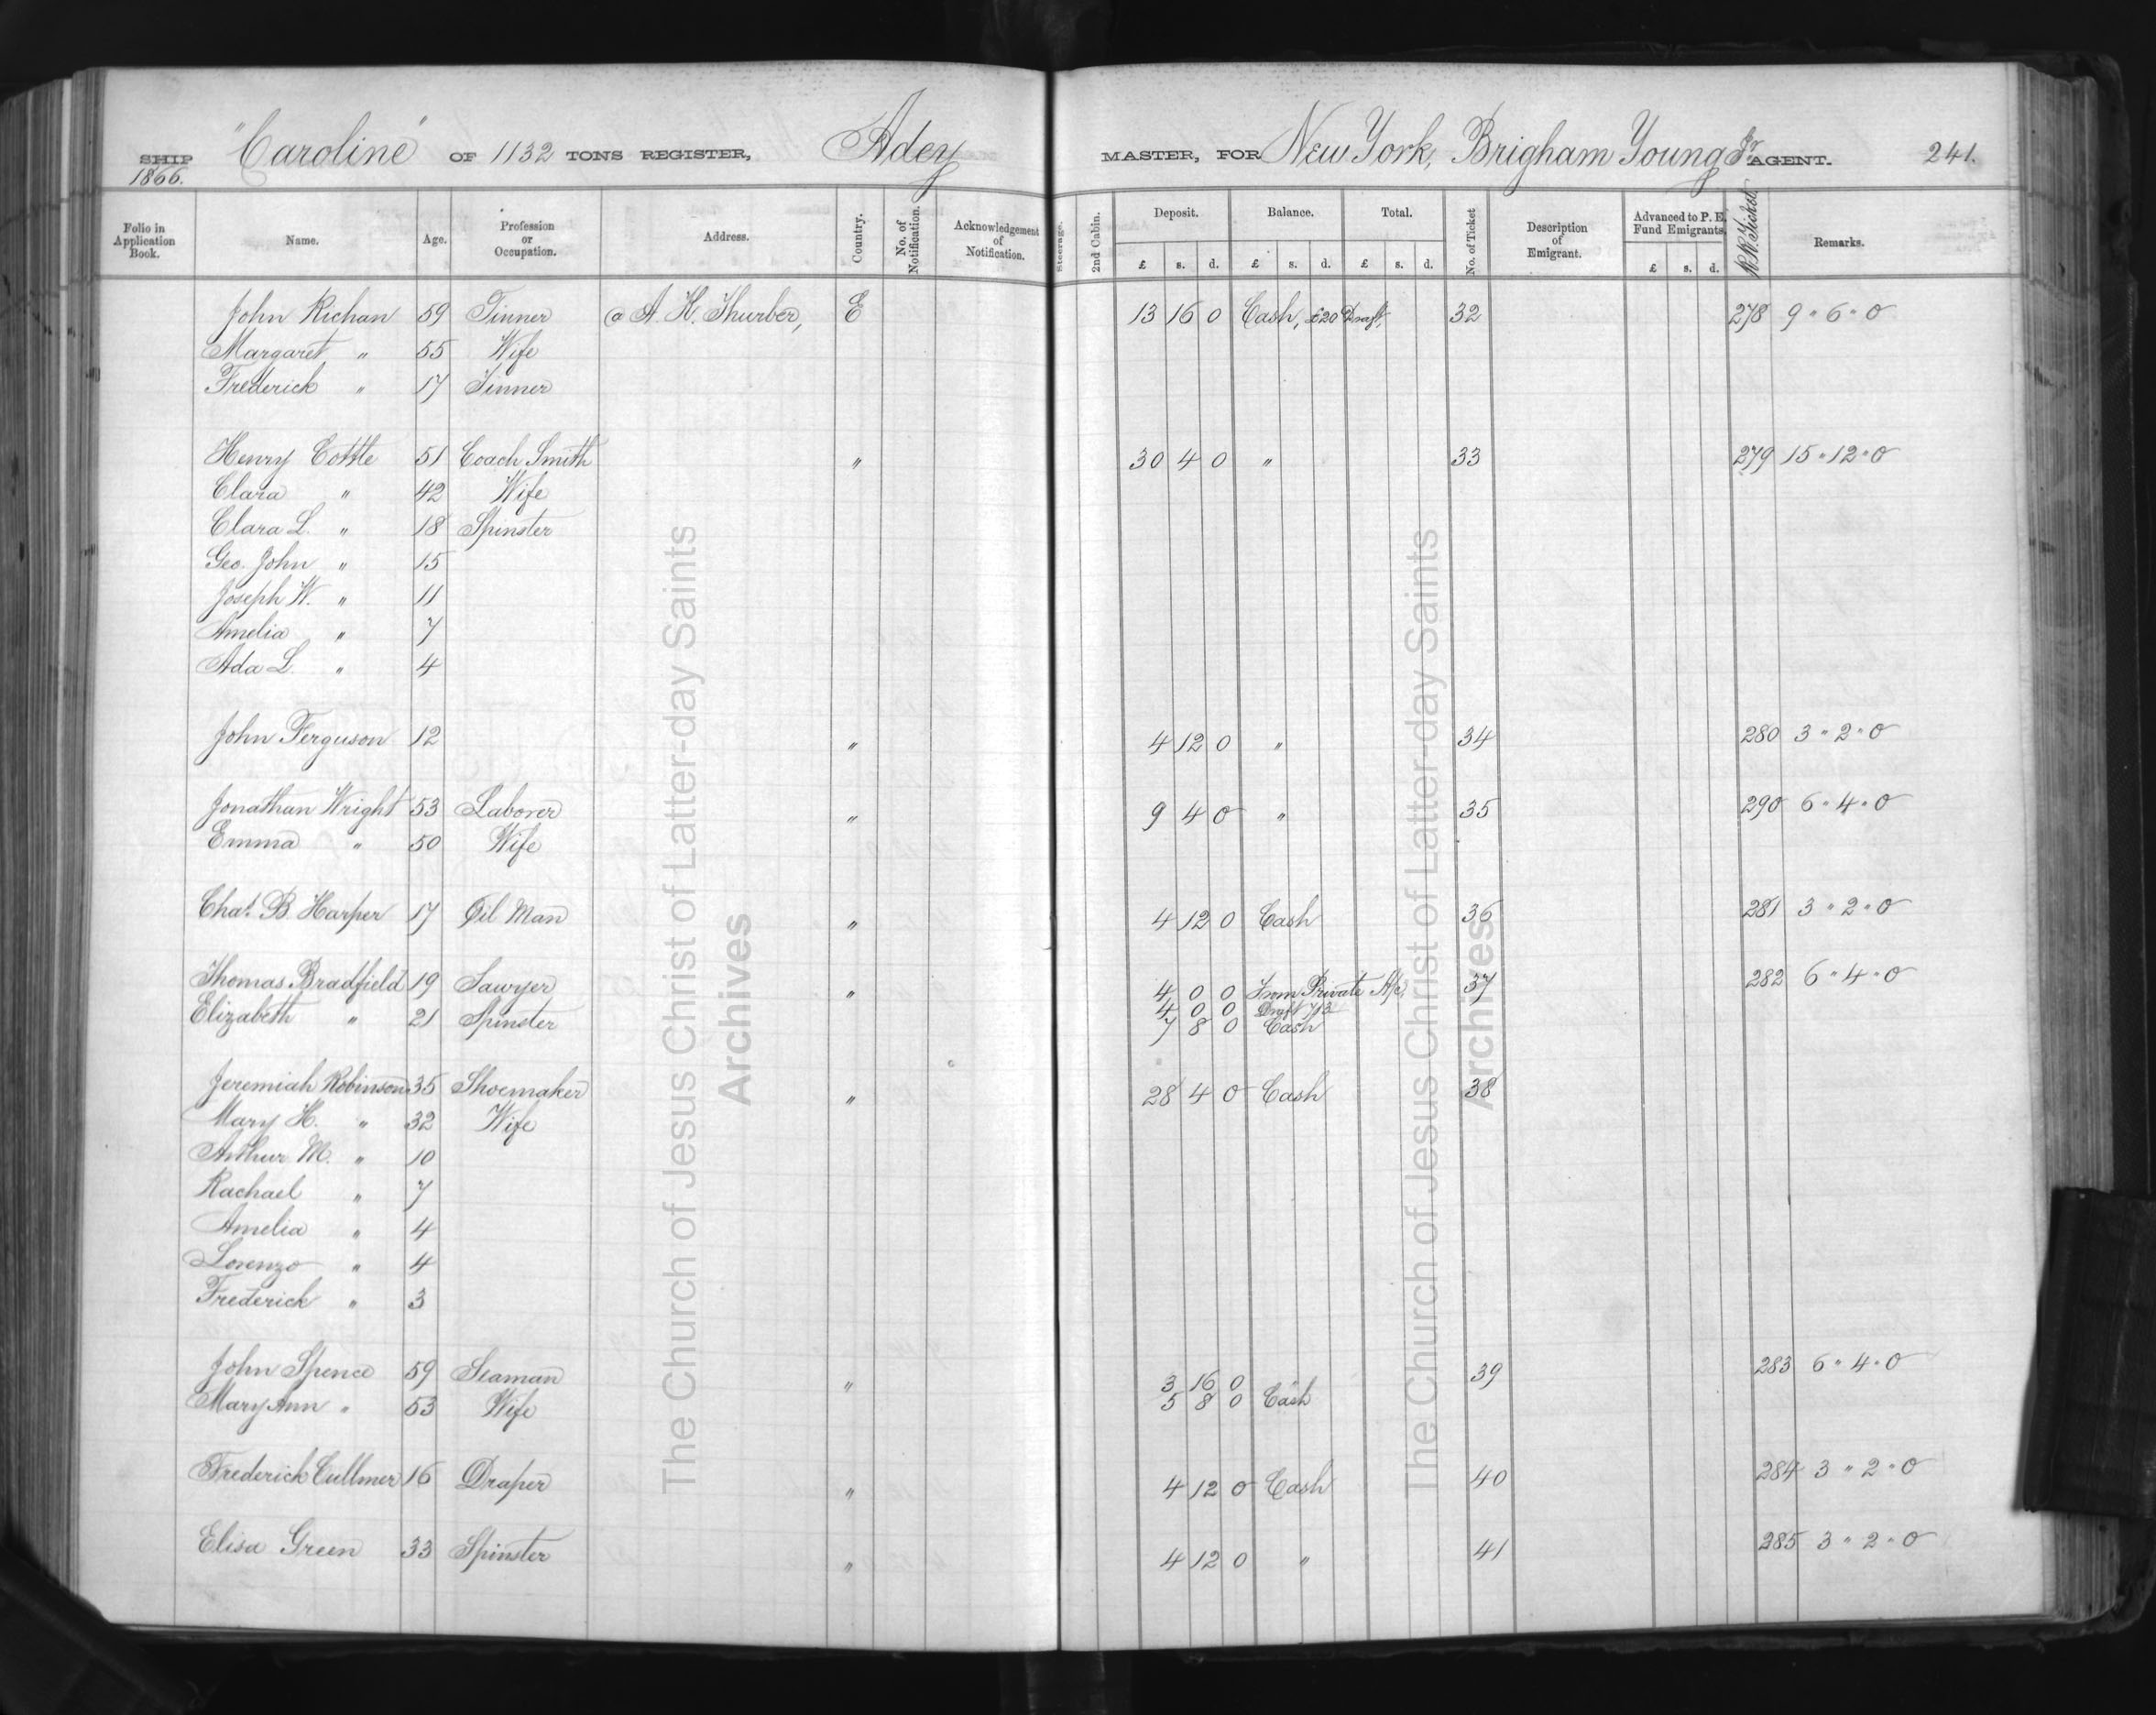 SHIP "Caroline" OF 1132 TONS REGISTER, Adey MASTER, FOR New York, Brigham Young Jr AGENT. 241.
1866.
Folio in Application Book. Name. Age. Profession or Occupation. Address. Country. No. of Notification. Acknowledgement of Notification. Steerage. 2nd Cabin. Deposit. Balance. Total. No. of Ticket Description of Emigrant. Advanced to P. E. Fund Emigrants. R.R. Ticket Remarks.
£ s. d. £ s. d. £ s. d. £ s. d.
John Richan 59 Tinner A. K. Thurber, E 13 16 0 Cash, £20 Draft, 32 278 9 " 6 " 0
Margaret " 55 Wife
Frederick " 17 Tinner
Henry Cottle 51 Coach Smith " 30 4 0 " 33 279 15 " 12 " 0
Clara " 42 Wife
Clara L. " 18 Spinster
Geo. John " 15
Joseph W. " 11
Amelia " 7
Ada L. " 4
John Ferguson 12 " 4 12 0 " 34 280 3 " 2 " 0
Jonathan Wright 53 Laborer " 9 4 0 " 35 290 6 " 4 " 0
Emma " 50 Wife
Chas. B. Harper 17 Oil Man " 4 12 0 Cash 36 281 3 " 2 " 0
Thomas Bradfield 19 Sawyer " 4 0 0 From Private A/c, 37 282 6 " 4 " 0
4 0 0 Draft
Elizabeth " 21 Spinster 7 8 0 Cash
Jeremiah Robinson 35 Shoemaker " 28 4 0 Cash 38
Mary H. " 32 Wife
Arthur M. " 10
Rachael " 7
Amelia " 4
Lorenzo " 4
Frederick " 3
John Spence 59 Seaman " 3 16 0 " 39 283 6 " 4 " 0
Mary Ann " 53 Wife 5 8 0 Cash
Frederick Cullmer 16 Draper " 4 12 0 Cash 40 284 3 " 2 " 0
Elisa Green 33 Spinster " 4 12 0 " 41 285 3 " 2 " 0
The Church of Jesus Christ of Latter-day Saints
Archives
The Church of Jesus Christ of Latter-day Saints
Archives